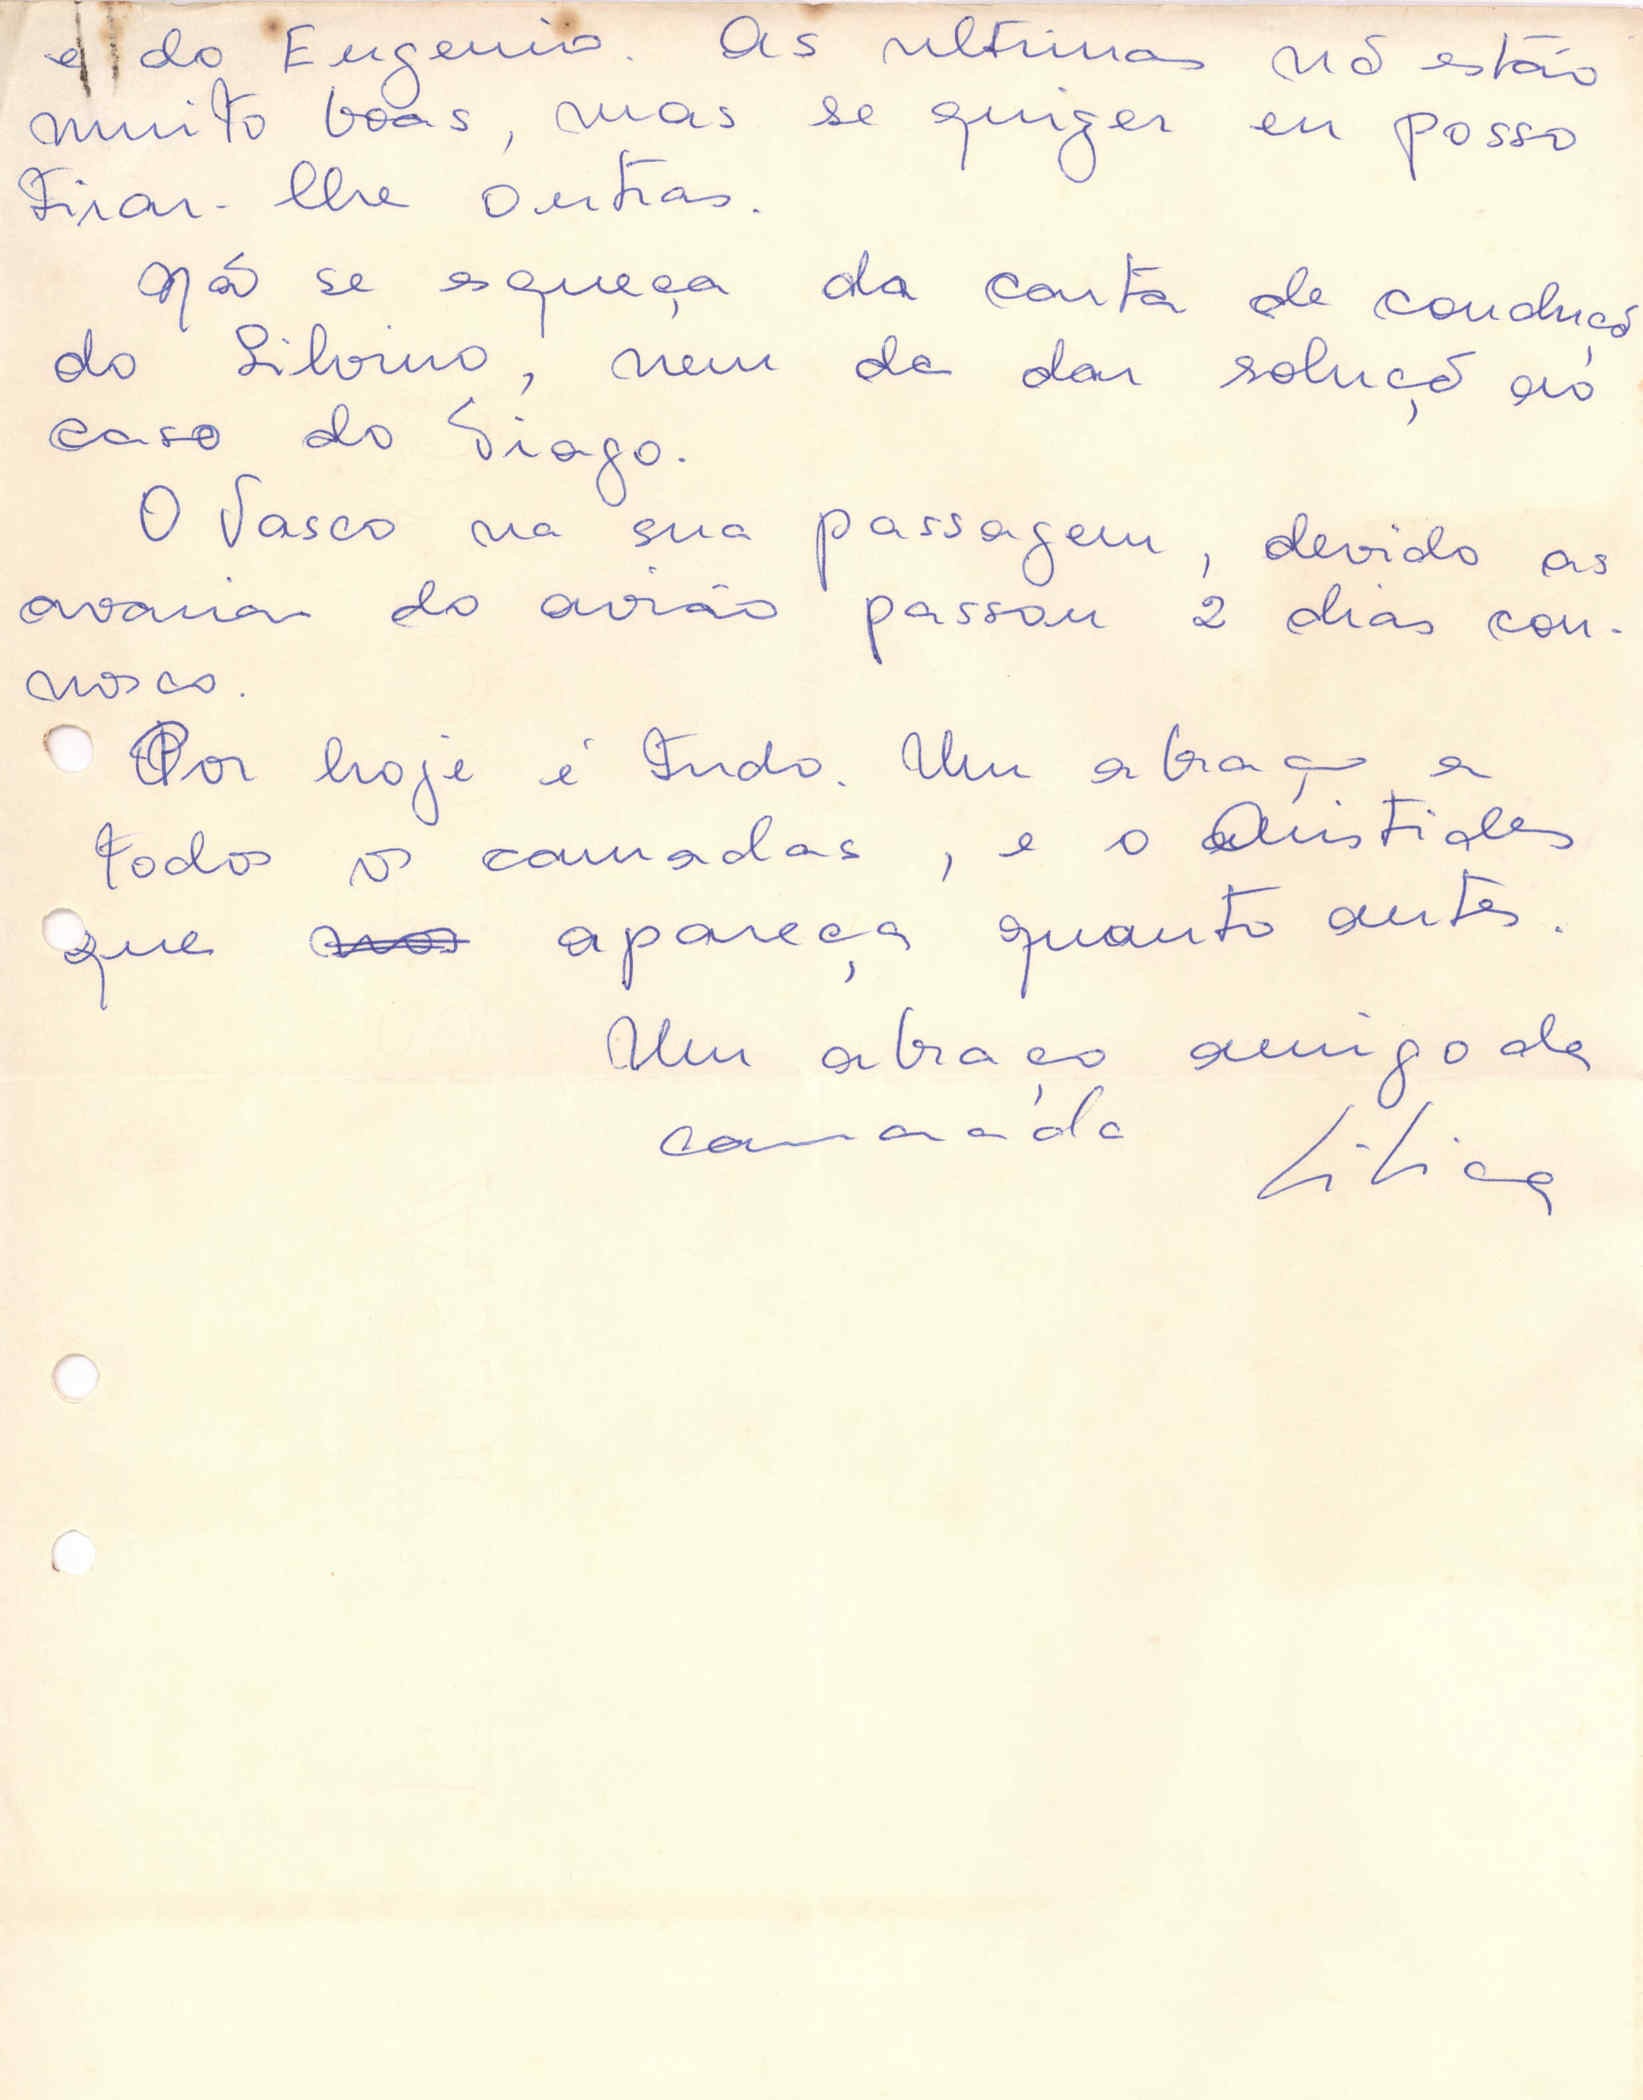 e do Eugenio. As ultimas nõ estão
muito boas, mas se quizer eu posso
tirar-lhe outras.
Nõ se esqueça da carta de conduçõ
do Silvino, nem de dar soluçõ ao
caso do Tiago.
O Vasco na sua passagem, devido as
avarias do avião passou 2 dias con-
nosco.
Por hoje é tudo. Um abraço a
todos os camadas, e o Aristides
que nos apareça quanto antes.
Um abraço amigo da
camarada Lilica